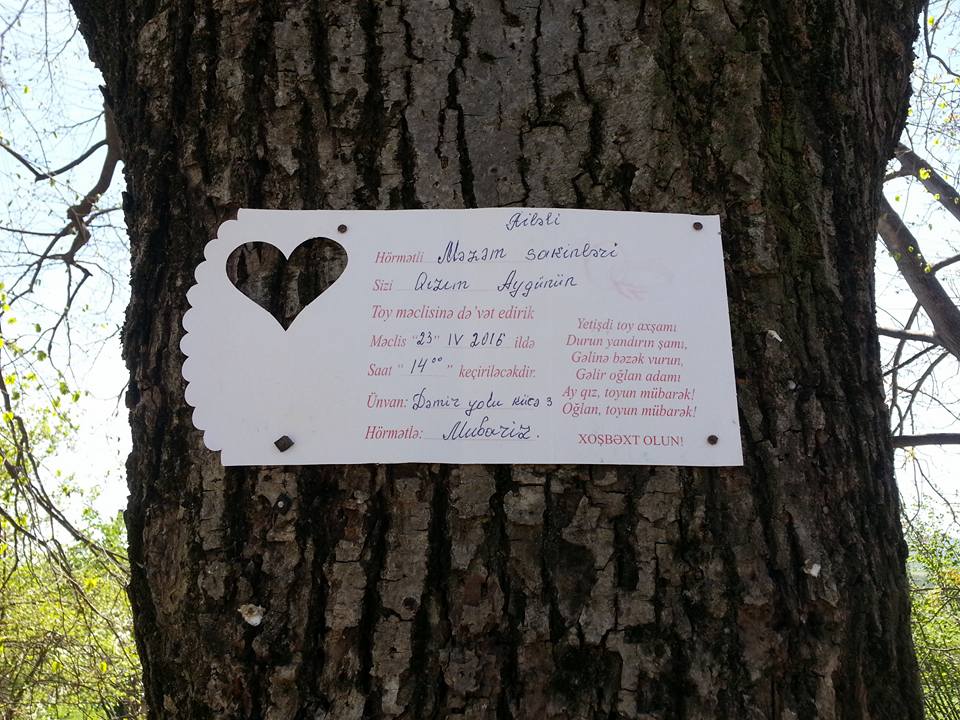 Ailəli
Hörmətli Mazam sakinləri
Sizi Qızım Aygünün
Toy məclisinə də'vət edirik
Məclis "23" IV 2016 ildə
Saat "14⁰⁰" keçiriləcəkdir.
Ünvan: Dəmir yolu küçə 3
Hörmətlə: Mubariz.
Yetişdi toy axşamı
Durun yandırın şamı,
Gəlinə bəzək vurun,
Gəlir oğlan adamı
Ay qız, toyun mübarək!
Oğlan, toyun mübarək!
XOŞBƏXT OLUN!